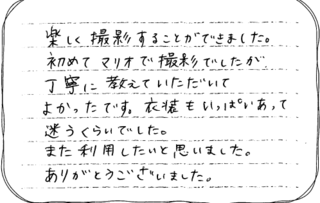 楽しく撮影することができました。
初めてマリオで撮影でしたが
丁寧に教えていただいて
よかったです。衣装もいっぱいあって
迷うくらいでした。
また利用したいと思いました。
ありがとうございました。